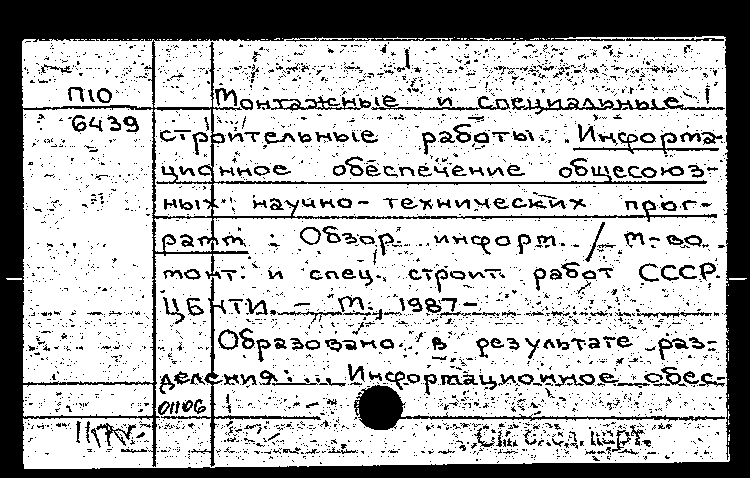 П10
6439
Монтажные и специальные
строительные работы. Информа-
ционное обеспечение общесоюз-
ных научно-технических прог-
рамм : Обзор. информ. / М-во
монт. и спец. строит. работ СССР.
ЦБНТИ. - М., 1987-
Образовано в результате раз-
деления: ... Информационное обес-
01106
См. след. карт.